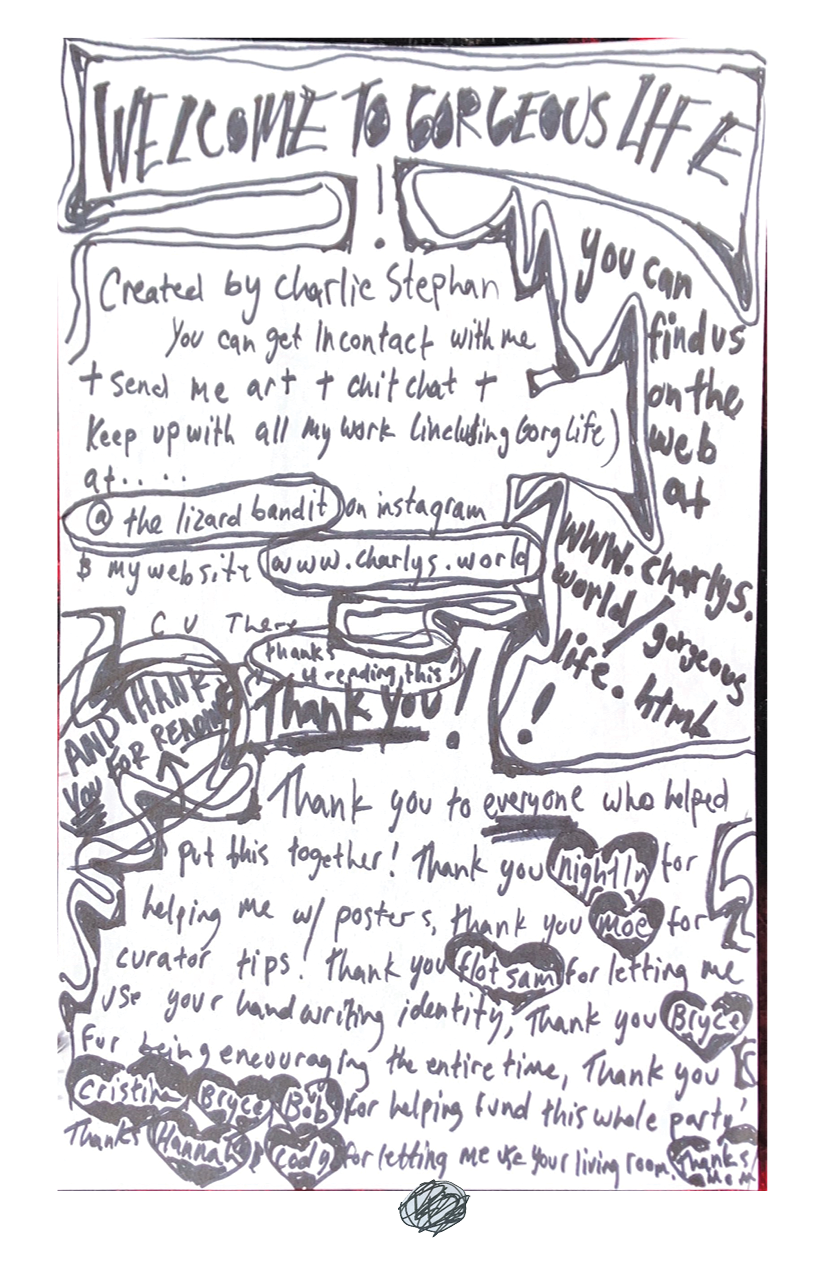 WELCOME TO GORGEOUS LIFE
!
Created by Charlie Stephan
You can get Incontact with me
+ send me art + chit chat +
Keep up with all my work (including GorgLife)
at.....
@ the lizard bandit on instagram
& my website www.charlys.world
C U There
you can
find us
on the
web
at
www.charlys.
world/gorgeous
life.html
!
thanks
4 reading this!
Thank you!
AND THANK
YOU FOR READING
Thank you to everyone who helped
put this together! Thank you for
helping me w/ posters, thank you moe for
curator tips! Thank you flotsam for letting me
use your handwriting identity, Thank you Bryce
for being encouraging the entire time, Thank you
Cristina, Bryce, Bob for helping fund this whole party!
Thanks Hannah & Cody for letting me use your living room. Thanks
Mom